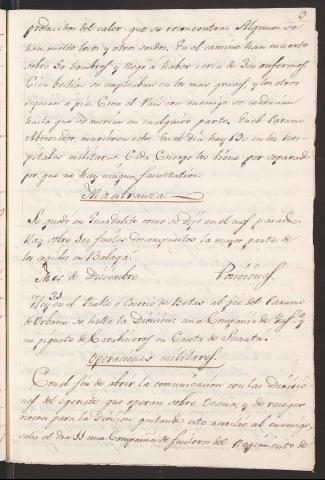 2
producidos del calor que se reconcentra. Algunos se
han vuelto locos y otros sordos. En el camino han muerto
sobre 30 hombres y llegó a haber cerca de 300 enfermos
Cien bestias se empleaban en los mas graves, y los otros
seguian a pié. Como el Pais era enemigo se conducian
hasta que se morian en cualquier parte. En el Paramo
Almorzadero murieron ocho. En el dia hay 130 en los hos-
pitales militares. Cada Cuerpo los tiene por separado
por que no hay ningun facultativo.
Maestranza
Se quedó en Guadalito como se dijo en el mes pasado.
Hay sobre 300 fusiles descompuestos la mayor parte de
los cogidos en Balagá.
Mes de Diciembre Posiciones.
Hoy 31 en el Pueblo y Caserio de Betas al pie del Paramo
de Urbano se halla la Division: una Compañia de
y un piquete de Carabineros en Cacota de Surata.
Operaciones militares.
Con el fin de abrir la comunicacion con las Divisio-
nes del egercito que operan sobre Ocaña, y de recoger
para la Division quitando este auxilio al enemigo,
salió el dia 11 una Compañia de fusileros del Regimiento de